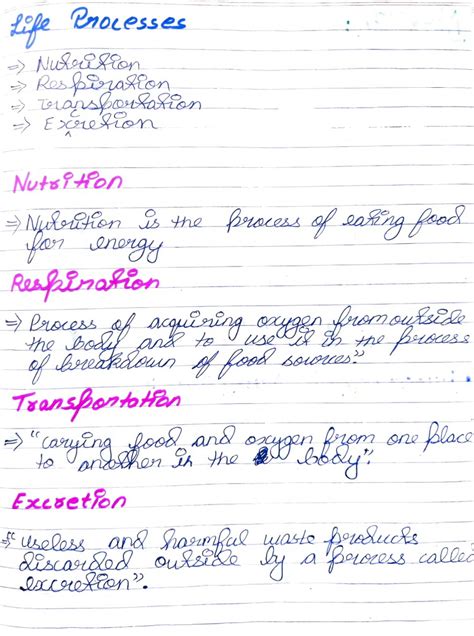 Life Processes
⇒ Nutrition
⇒ Respiration
⇒ Transportation
⇒ Excretion
Nutrition
⇒ Nutrition is the process of eating food
for energy
Respiration
⇒ Process of acquiring oxygen from outside
the body and to use it in the process
of breakdown of food sources."
Transportation
⇒ "carying food and oxygen from one place
to another in the body".
Excretion
⇒ "useless and harmful waste products
discarded outside by a process called
excretion".